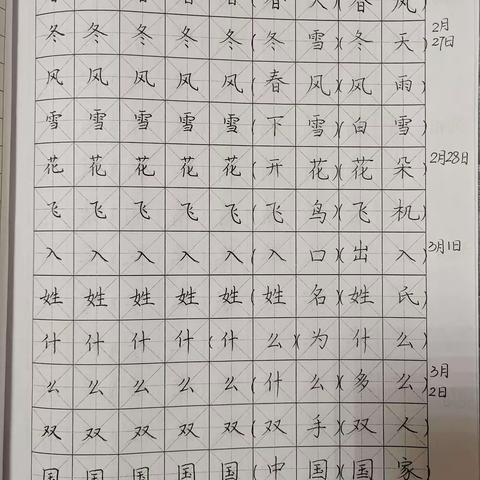 春人)(春风)
冬冬冬冬冬(冬雪)(冬天) 2月27日
风风风风风(春风)(风雨)
雪雪雪雪雪(下雪)(白雪)
花花花花花(开花)(花朵) 2月28日
飞飞飞飞飞(飞鸟)(飞机)
入入入入入(入口)(出入) 3月1日
姓姓姓姓姓(姓名)(姓氏)
什什什什(什么)(为什么)
么么么么么(什么)(多么) 3月2日
双双双双双(双手)(双人)
国国国国国(中国)(国家)